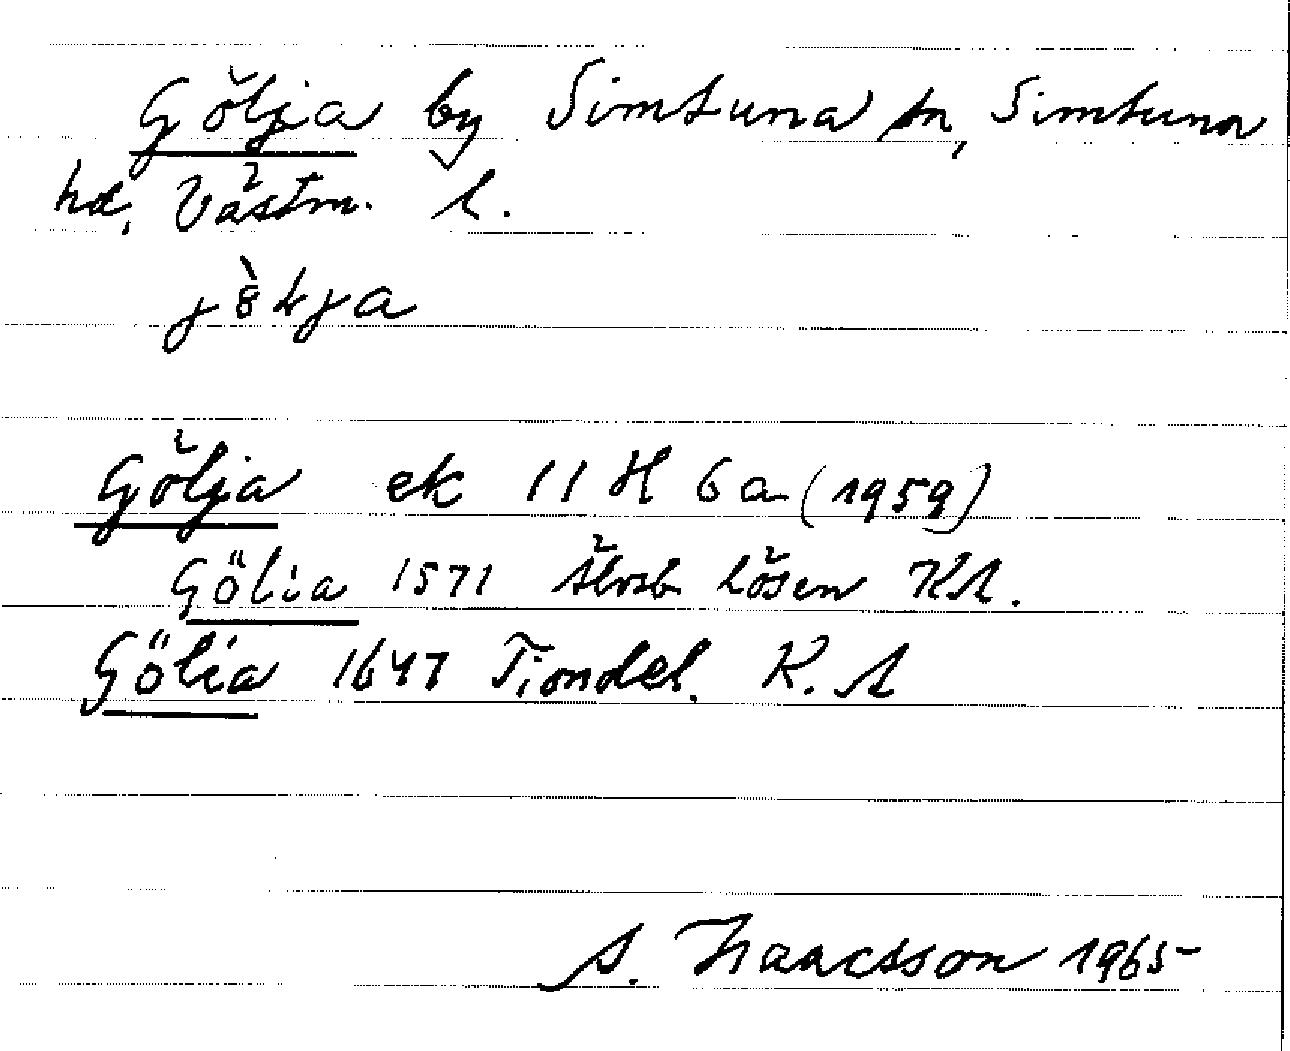 Gölja by Simtuna sn, Simtuna
hd, Västm. l.
jö̀lja
Gölja ek 11 H 6 a (1959)
Gölia 1571 Älvsb. lösen KA.
Gölia 1647 Tiondel. K. A
A. Isaacsson 1965